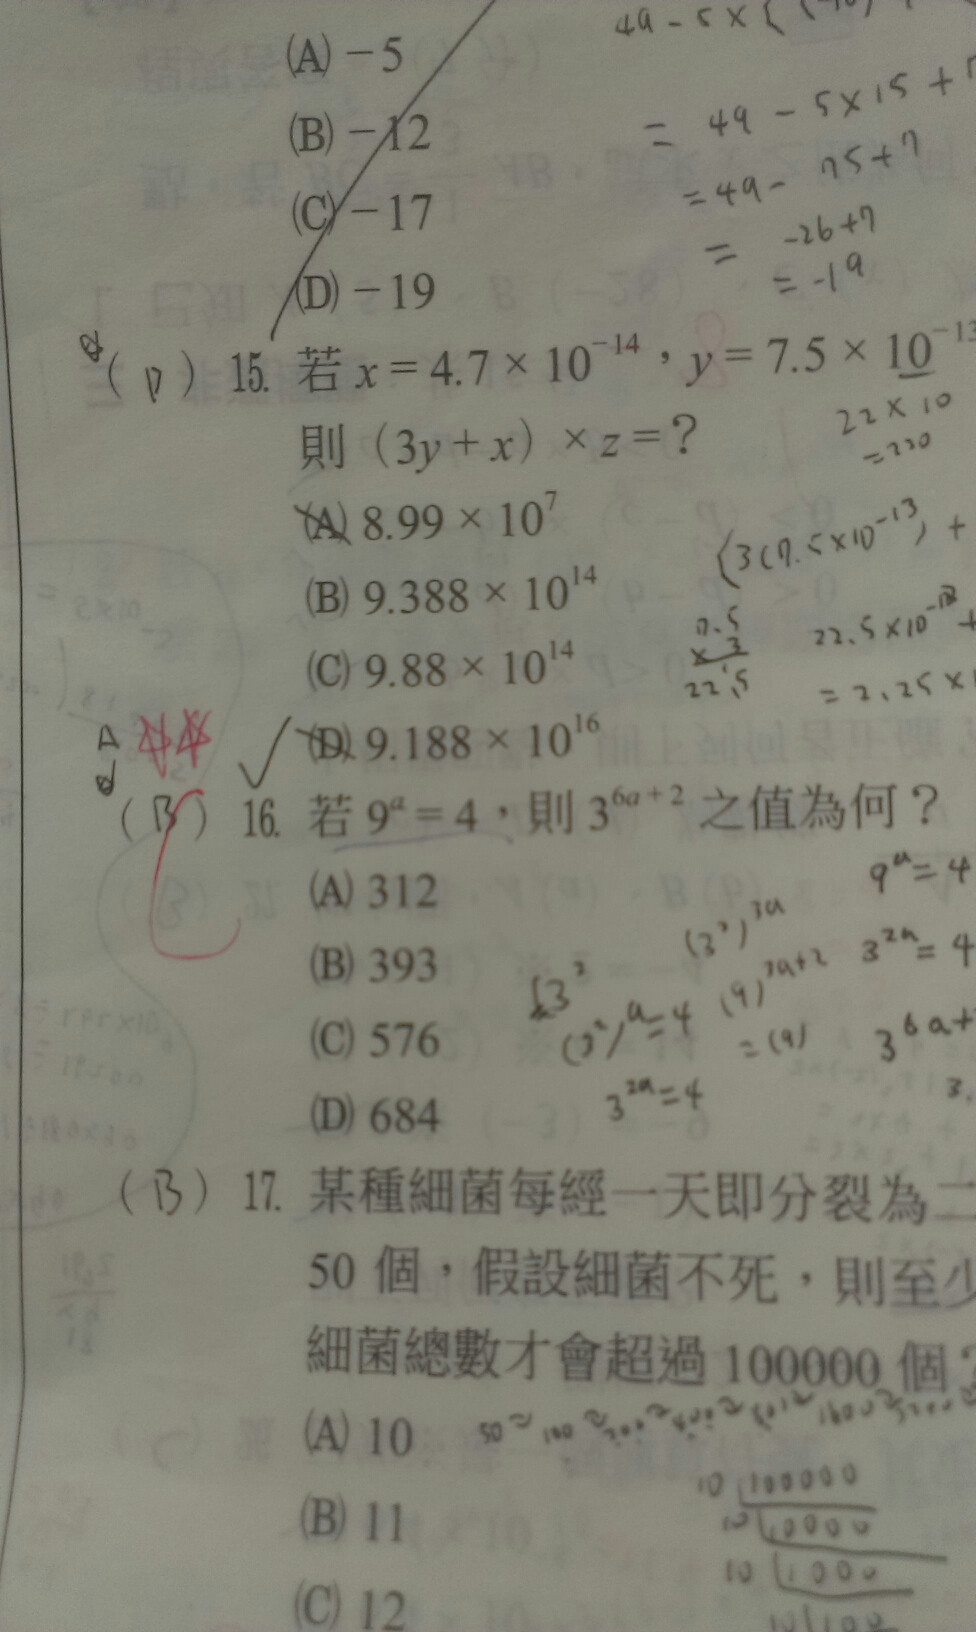 (A) －5
(B) －12
(C) －17
(D) －19
= 49 - 5×15 +
= 49 - 75+7
= -26+7
= -19
( D ) 15. 若 x = 4.7 × 10⁻¹⁴，y = 7.5 × 10⁻¹³
則（3y + x）× z = ?
22 × 10
= 220
(A) 8.99 × 10⁷
(B) 9.388 × 10¹⁴
(C) 9.88 × 10¹⁴
(D) 9.188 × 10¹⁶
(3(7.5×10⁻¹³) +
7.5
× 3
22.5
22.5×10⁻¹³ +
= 2.25 ×
( B ) 16. 若 9ᵃ = 4，則 3⁶ᵃ⁺² 之值為何？
(A) 312
(B) 393
(C) 576
(D) 684
9ᵃ = 4
3²ᵃ = 4
(3²)³ᵃ
(9)³ᵃ⁺²
= (9)
(3²)ᵃ = 4
3²ᵃ = 4
3⁶ᵃ⁺
( B ) 17. 某種細菌每經一天即分裂為二
50 個，假設細菌不死，則至少
細菌總數才會超過 100000 個？
(A) 10
(B) 11
(C) 12
10 100000
10 10000
10 1000
10 100